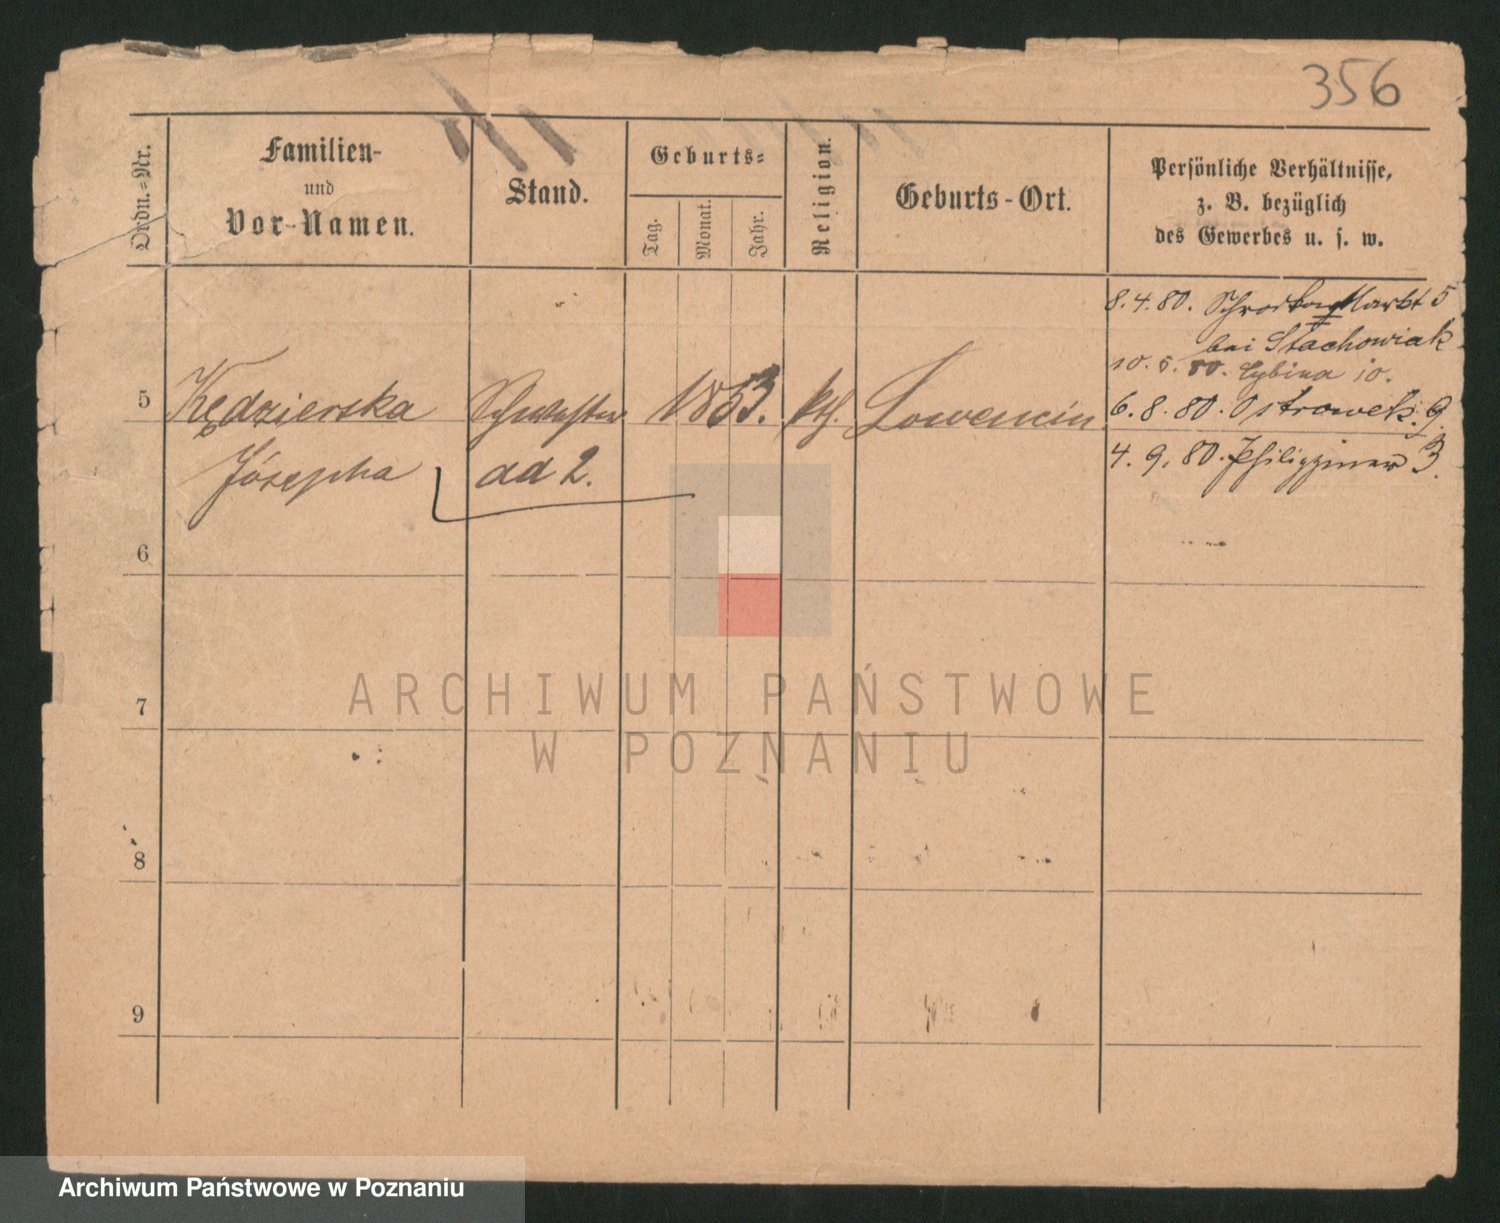 356
Ordn.-Nr.
Familien-
und
Vor-Namen.
Stand.
Geburts-
Tag.
Monat.
Jahr.
Religion.
Geburts-Ort.
Persönliche Verhältnisse,
z. B. bezüglich
des Gewerbes u. s. w.
8.4.80. Schrodka Markt 5
bei Stachowiak
10.5.80. Cybina 10.
5 Kędzierska Schwester 1853. kth. Lowencin 6.8.80. Ostrowek. 9.
Józepha ad 2. 4.9.80. Philippiner 3.
6
7
8
9
ARCHIWUM PAŃSTWOWE
W POZNANIU
Archiwum Państwowe w Poznaniu